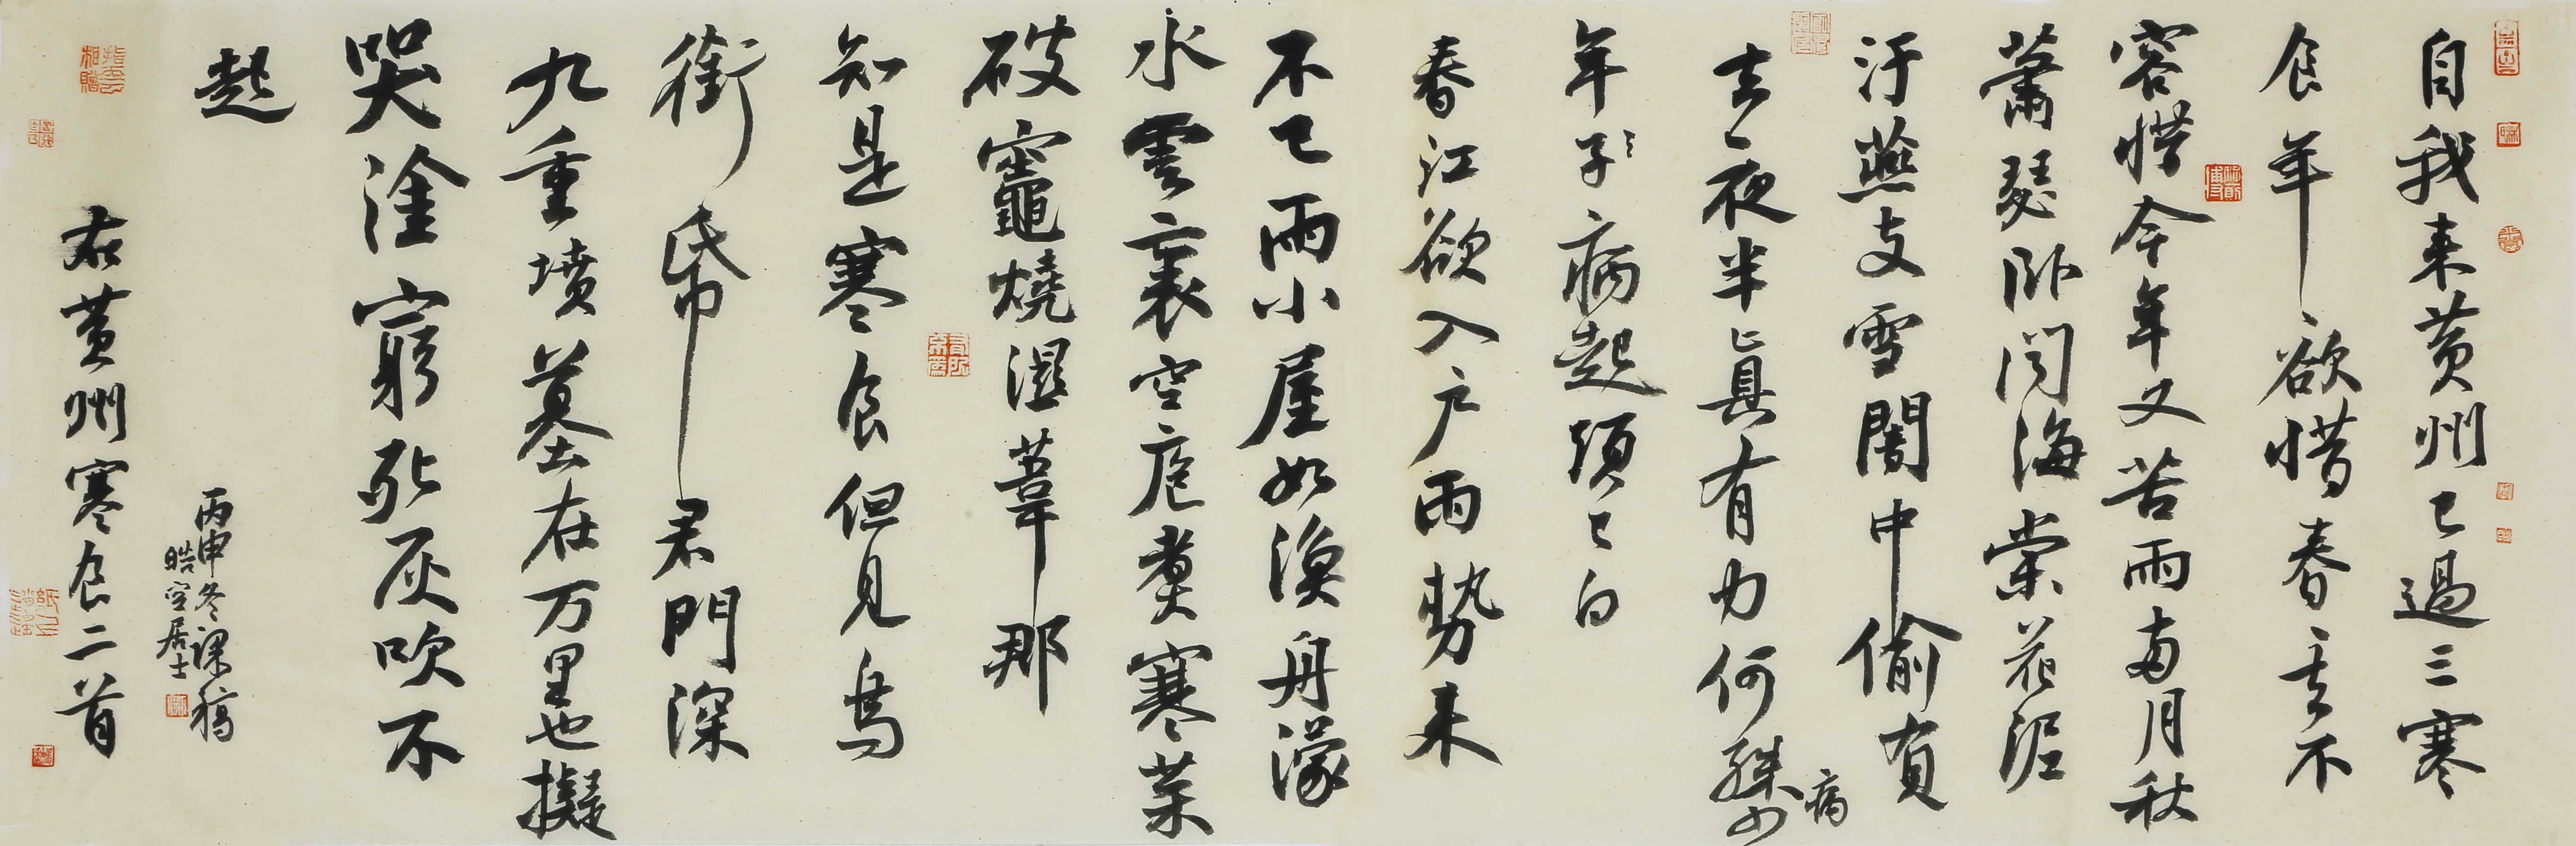 自我来黄州已過三寒
食年年欲惜春春去不
容惜今年又苦雨兩月秋
蕭瑟卧聞海棠花泥
汙燕支雪闇中偷負
去夜半真有力何殊少
病
年子病起頭已白
春江欲入户雨勢来
不已雨小屋如漁舟濛濛
水雲裏空庖煮寒菜
破竈燒濕葦那
知是寒食但見烏
銜帋君門深
九重墳墓在万里也擬
哭塗窮死灰吹不
起
丙申冬課稿
皓空居士
右黄州寒食二首